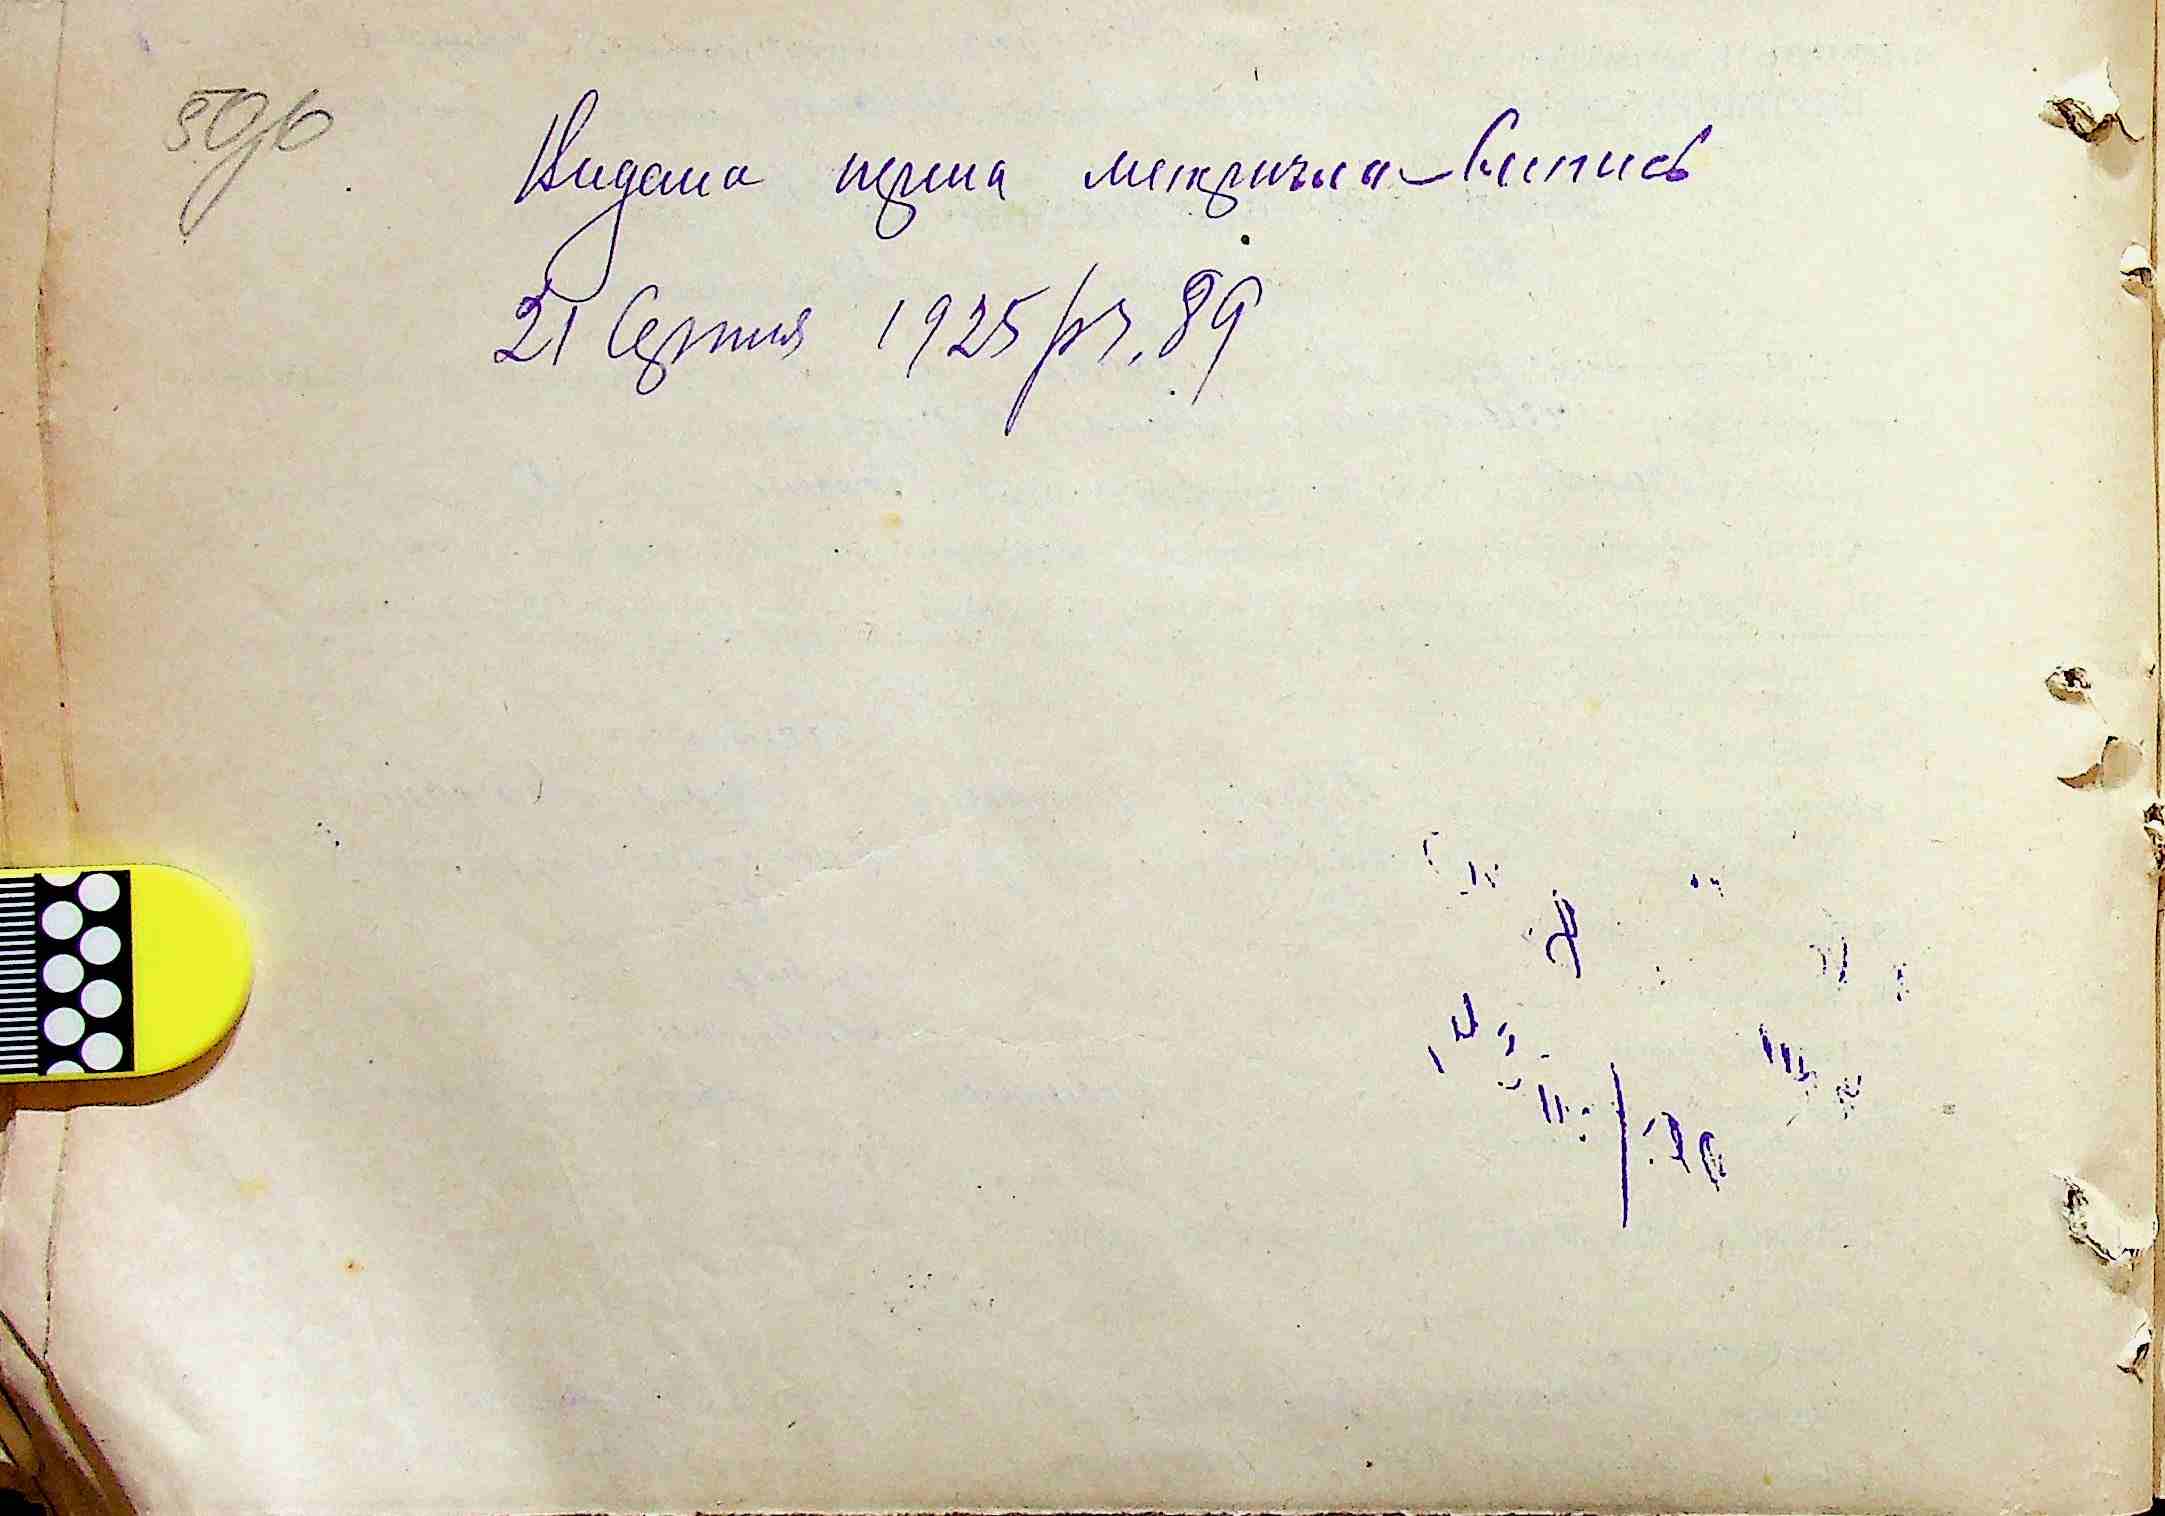 59об
Видана перша метрична випись
21 Серпня 1925 р ч. 89